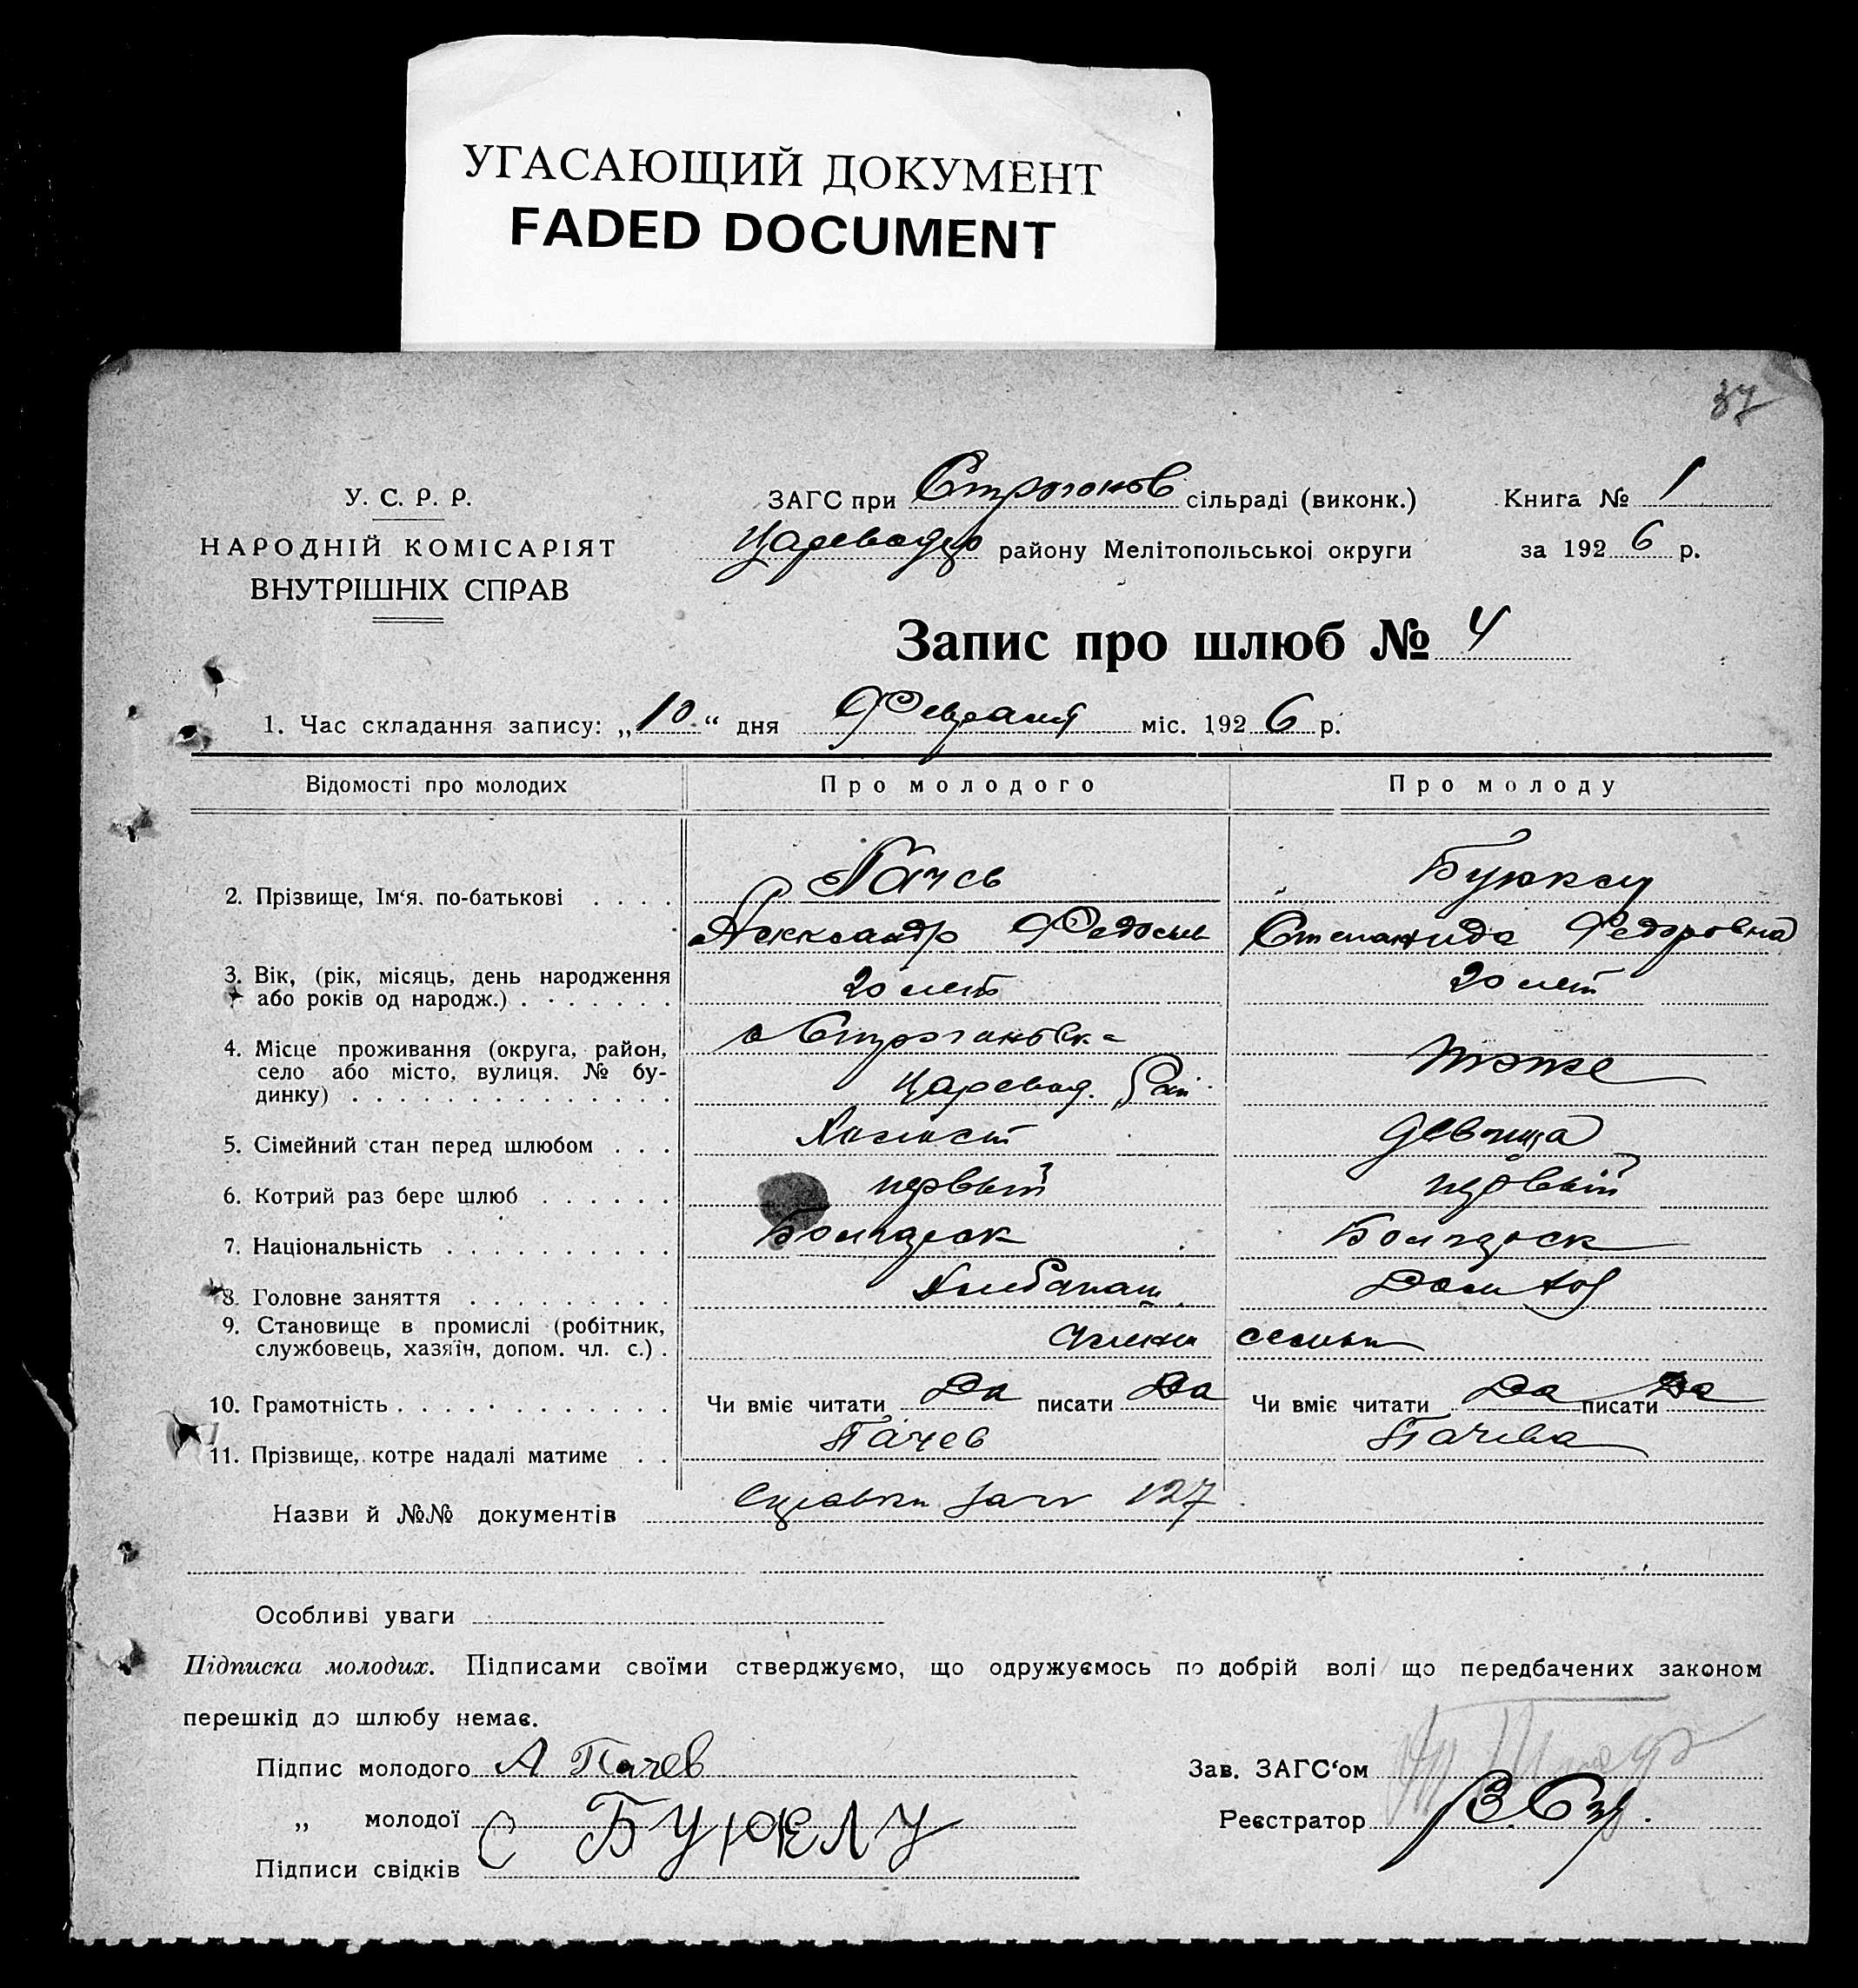 УГАСАЮЩИЙ ДОКУМЕНТ
FADED DOCUMENT
37
У. С. Р. Р.
НАРОДНІЙ КОМІСАРІЯТ
ВНУТРІШНІХ СПРАВ
ЗАГС при Строгонов сільраді (виконк.)
Книга № 1
району Мелітопольської округи
за 1926 р.
Запис про шлюб № 4
1. Час складання запису: „10“ дня Февраля міс. 1926 р.
Відомості про молодих Про молодого Про молоду
2. Прізвище, Ім‘я, по-батькові . . . .
Пачев
Александр Федосьев
Буюклу
Степанида Федоровна
3. Вік, (рік, місяць, день народження
або років од народж.) . . . . . . .
20 лет
20 лет
4. Місце проживання (округа, район,
село або місто, вулиця, № бу-
динку) . . . . . . . . . . . . . . .
с Строгановка
Царевод. Рай
тоже
5. Сімейний стан перед шлюбом . . . Холост девица
6. Котрий раз бере шлюб . . . . . . первый первый
7. Національність . . . . . . . . . . Болгарск Болгарск
8. Головне заняття . . . . . . . . . Хлебопаш. Дом хоз
9. Становище в промислі (робітник,
службовець, хазяїн, допом. чл. с.) .
члены семьи
10. Грамотність . . . . . . . . . . . . Чи вміє читати Да писати Да Чи вміє читати Да писати Да
11. Прізвище, котре надалі матиме . . Пачев Пачева
Назви й №№ документів Справки 127
Особливі уваги
Підписка молодих. Підписами своїми стверджуємо, що одружуємось по добрій волі що передбачених законом
перешкід до шлюбу немає.
Підпис молодого А Пачев
Зав. ЗАГС‘ом
„ молодої С БУЮКЛУ
Реєстратор
Підписи свідків